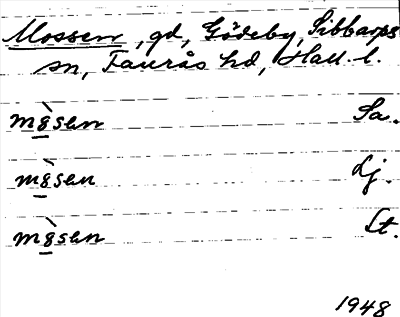 Mossen, gd, Gödeby, Sibbarps
sn, Faurås hd, Hall. l.
m8̲̀sen Sa.
m8̲̀sen Lj.
m8̲̀sen St.
1948